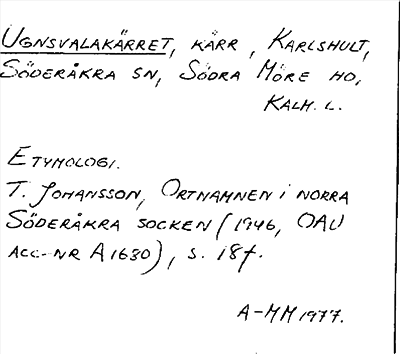 UGNSVALAKÄRRET, KÄRR, KARLSHULT,
SÖDERÅKRA SN, SÖDRA MÖRE HD,
KALM. L.
ETYMOLOGI.
T. JOHANSSON, ORTNAMNEN I NORRA
SÖDERÅKRA SOCKEN (1946, OAU
ACC-NR A1630), S. 18f.
A-MM 1977.